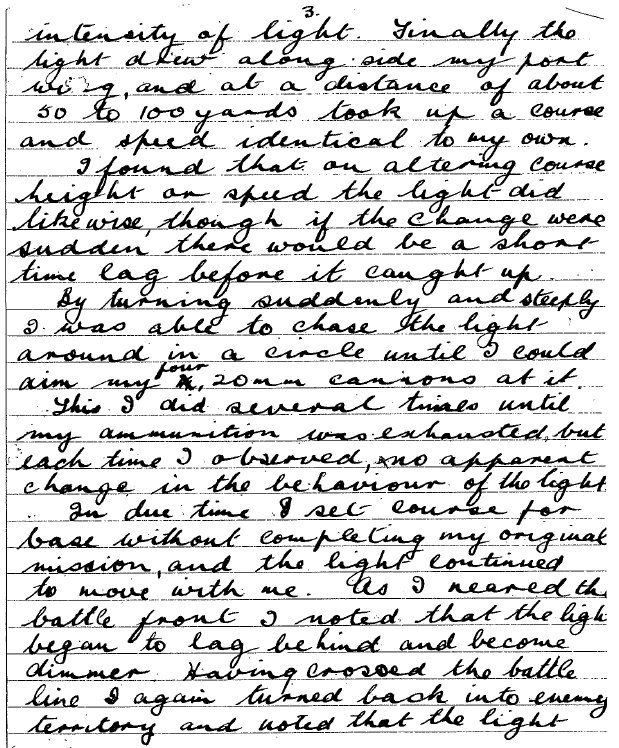 3.
intensity of light. Finally the
light drew along side my port
wing, and at a distance of about
50 to 100 yards took up a course
and speed identical to my own.
I found that on altering course
height or speed the light did
likewise, though if the change were
sudden there would be a short
time lag before it caught up.
By turning suddenly and steeply
I was able to chase the light
around in a circle until I could
four
aim my 20mm cannons at it.
This I did several times until
my ammunition was exhausted, but
each time I observed, no apparent
change in the behaviour of the light
In due time I set course for
base without completing my original
mission, and the light continued
to move with me. As I neared th
battle front I noted that the ligh
began to lag behind and become
dimmer. Having crossed the battle
line I again turned back into enemy
territory and noted that the light